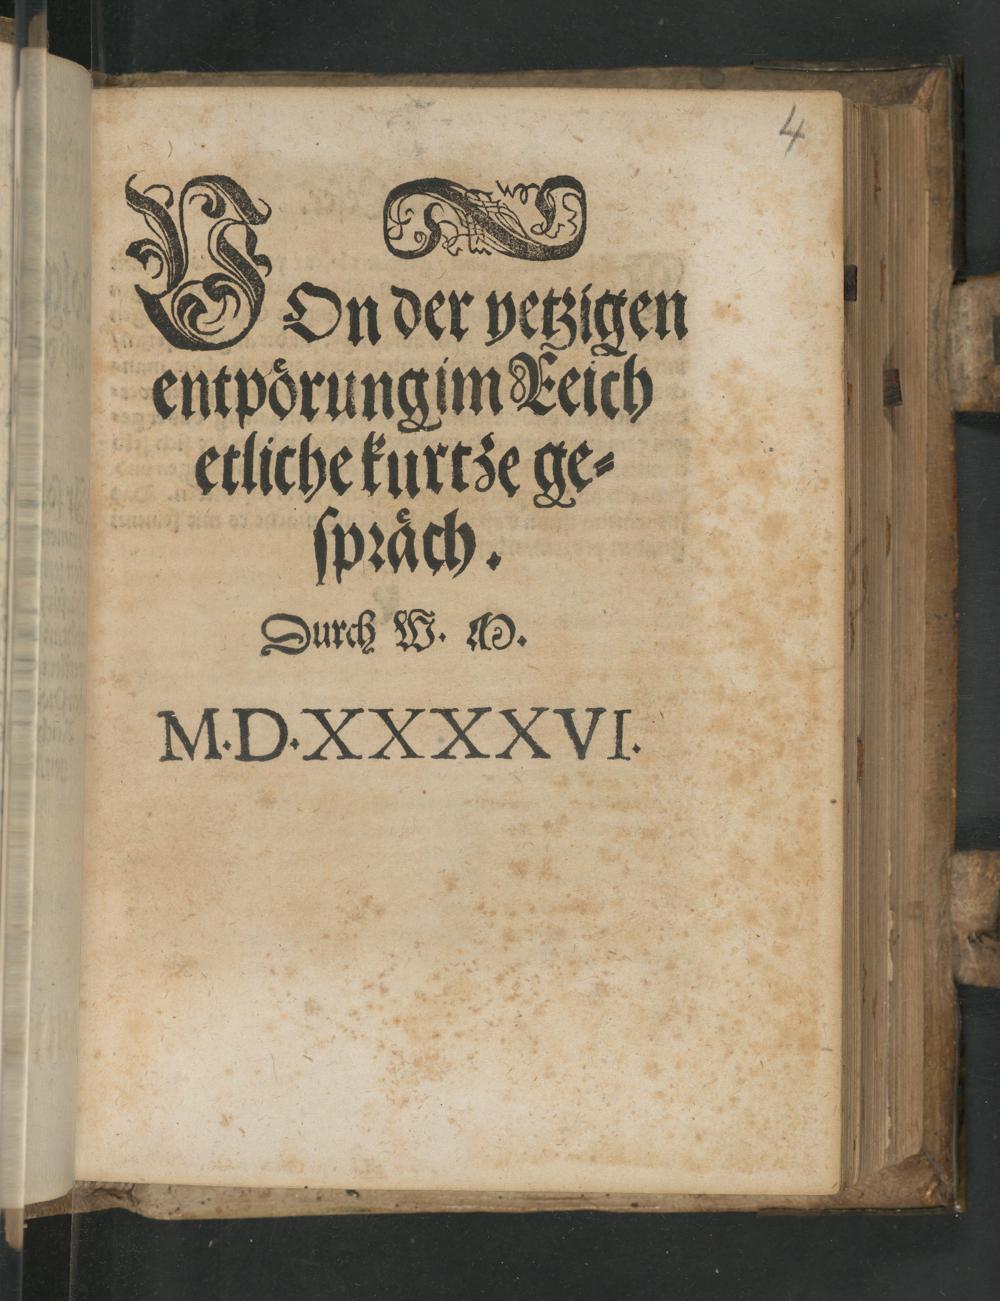 4
VOn der yetzigen
entpoͤrung im Reich
etliche kurtze ge⸗
ſpraͤch.
Durch W. M.
M.D.XXXXVI.